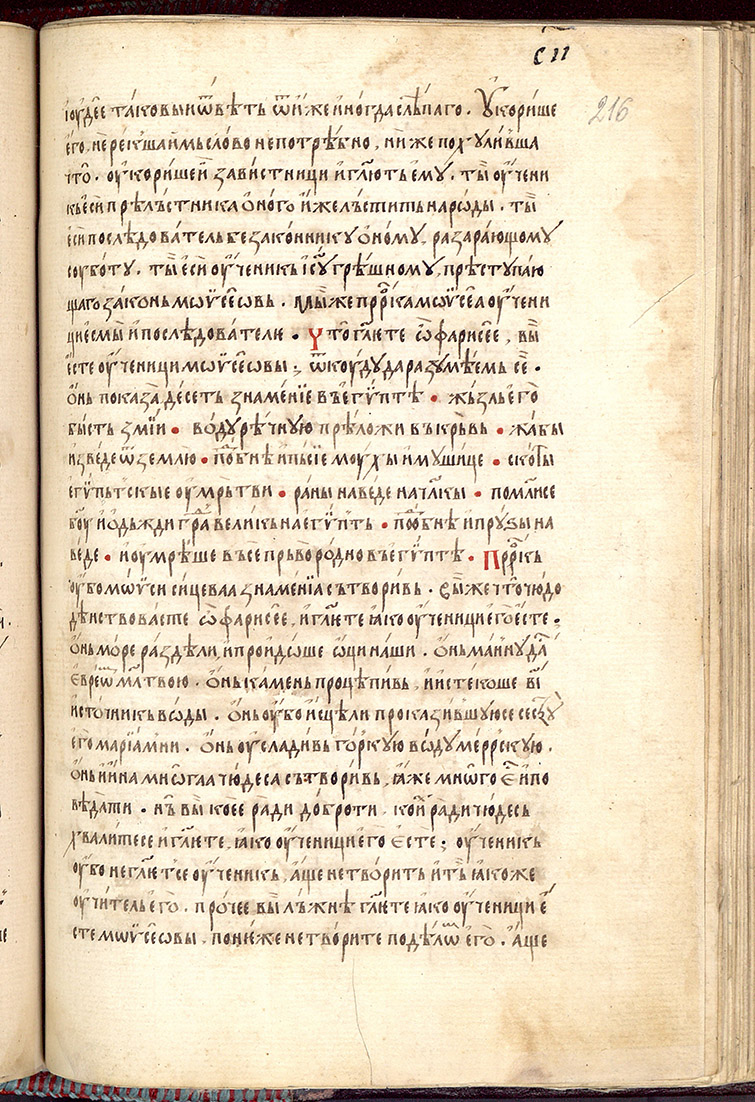 сн҃
216
і҆оуде́е та́ковыи ѿвѣть ѿ и҆же и҆ногда слѣ́паго. Укори́ше
е҆го̀, не рекꙋ́ша и҆мь сло́во непотрѣ́бно, ни́же поху́ливша
что̀. оу҆кори́ше и҆ зави́стници и҆ гл҃ють е҆мꙋ̀. ты̀ оу҆чени
кь е҆си прѣлъ́стника ѻ҆ного̀ и҆же лъ́стить наро́ды. ты̀
е҆си послѣ́дователь безако́ннику ѻ҆ному, разара́ющому
соубѡ́ту. ты̀ е҆си оу҆ченикь і҆с҃у грѣ́шному, прѣступа́ю
щаго за́конь мѡѵсе́ѡвь. мы́ же прⷪ҇рка мѡѵсе́а оу҆чени
ци е҆смы̀ и҆ послѣ́дователе. Что̀ гл҃ете ѽ фарисе́е, вы̀
е҆сте оу҆че́ници мѡѵсе́ѡвы; ѿкоуду да разумѣ́емь се.
ѻ҆нь показа̀ де́сеть зна́менїе въ е҆гѵ́птѣ. жъ́зль е҆го̀
бы́сть змїи. во́ду рѣ́чную прѣло́жи въ кръвь. жа́бы
и҆зве́де ѿ землю. поⷣбнѣ и҆ пьсїе моу́хы и҆ мꙋшице. ско́ты
е҆гѵ́пьтскые оу҆мръ́тви. ра́ны наве́де на тл҃кы. помл҃исе
бг҃оу и҆ ѻ҆дъжди граⷣ вели́кь на е҆гѵ́пть. поⷣбнѣ и҆ прꙋзы на
ве́де. и҆ оу҆мрѣ́ше въсе пръ́вородно въ е҆гѵ́птѣ. Прⷪ҇ркь
оу҆бо мѡѵси си́цеваа зна́менїа сътвори́вь. вы́ же что̀ чю́до
дѣ́иствовасте ѽ фарисе́е, и҆ гл҃ете ꙗ҆ко оу҆ченици е҆го̀ е҆сте.
ѻ҆нь мо́ре разⷣѣли, и҆ проидо́ше ѿци на́ши. ѻ҆нь ма́нну даⷭ҇
е҆вре́ѡⷨ мл҃твою. ѻ҆нь ка́мень проце́пивь, и҆ и҆сте́коше в҃і
и҆сто́чникь во́ды. ѻ҆нь оу҆бо и҆сцѣли прока́зившуюсе сестру̀
е҆го̀ марїа́мїи. ѻ҆нь оу҆сла́дивь го́ркую во́ду ме́ррскую.
ѻ҆нь и҆ и҆на мнѡ́гаа чю́деса сътвори́вь, ꙗ҆́же мнѡ́го еⷭ҇ и҆спо
вѣ́дати. нъ вы̀ ко́ее ради до́броти. кои́ⷯ ради чю́десь
хвали́тесе и҆ гл҃ете, ꙗ҆ко оу҆ченици е҆го̀ е҆сте; оу҆ченикь
оу҆бо не гл҃етсе оу҆ченикь, а҆ще не твори́ть и҆ тъ ꙗ҆коже
оу҆чи́тель е҆го̀. про́чее вы̀ лъ́жнѣ гл҃ете ꙗ҆ко оу҆ченици е҆
сте мѡѵсе́ѡвы, пониже не твори́те по дѣ́лѡⷨ е҆го̀. А҆ще